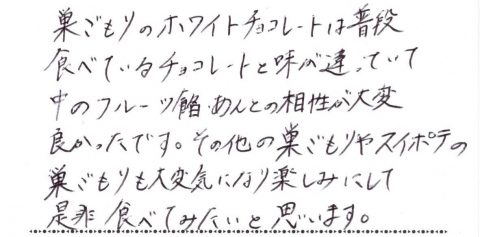 巣ごもりのホワイトチョコレートは普段
食べているチョコレートと味が違っていて
中のフルーツ餡・あんとの相性が大変
良かったです。その他の巣ごもりやスイポテの
巣ごもりも大変気になり楽しみにして
是非食べてみたいと思います。